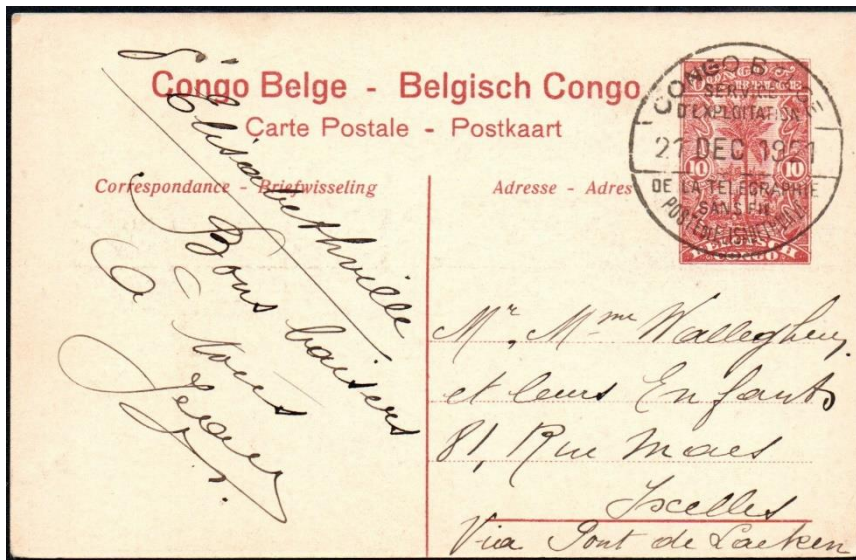 Congo Belge - Belgisch Congo
Carte Postale - Postkaart
Correspondance - Briefwisseling
Adresse - Adres
CONGO BELGE
SERVICE
D'EXPLOITATION
DEC
DE LA TELEGRAPHIE
SANS FIL
10 10
Elisabethville
Bons baisers
à tous
Mr, Mme
et leurs Enfants
81, Rue Maes
Ixelles
Via Pont de Laeken